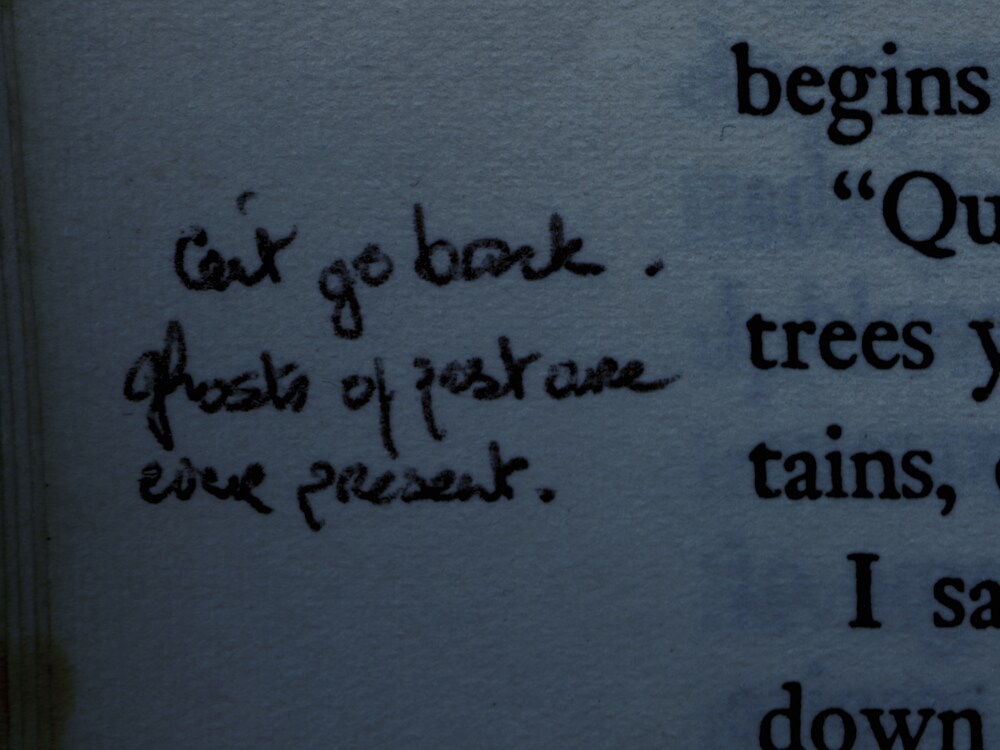 Can't go back.
Ghosts of past are
ever present.
begins
“Qu
trees y
tains,
I sa
down